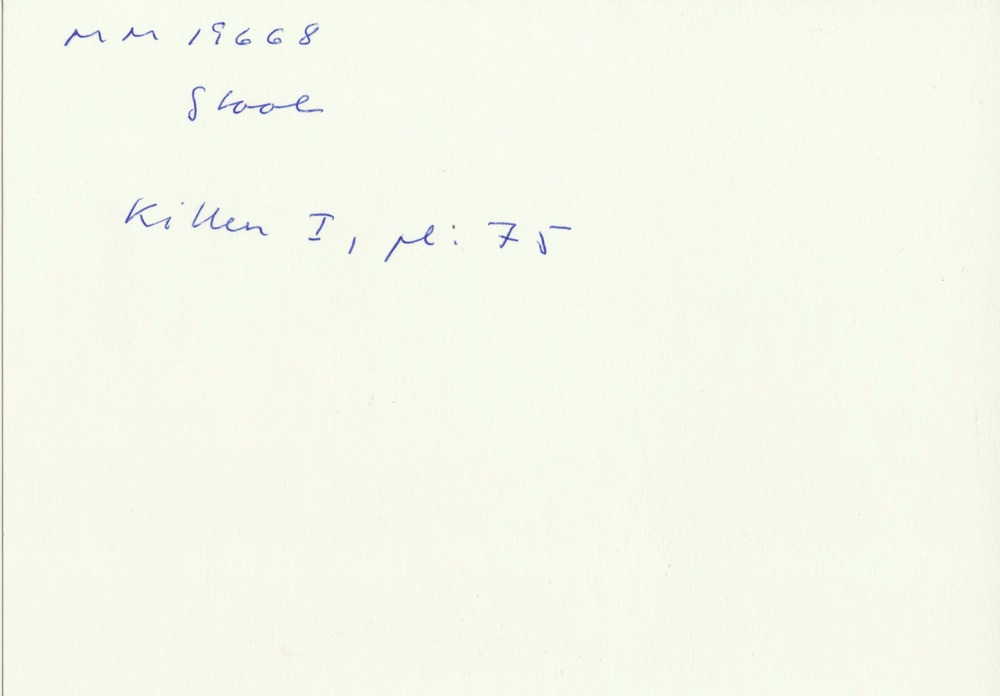 MM 19668
Stool
Killen I, pl: 75